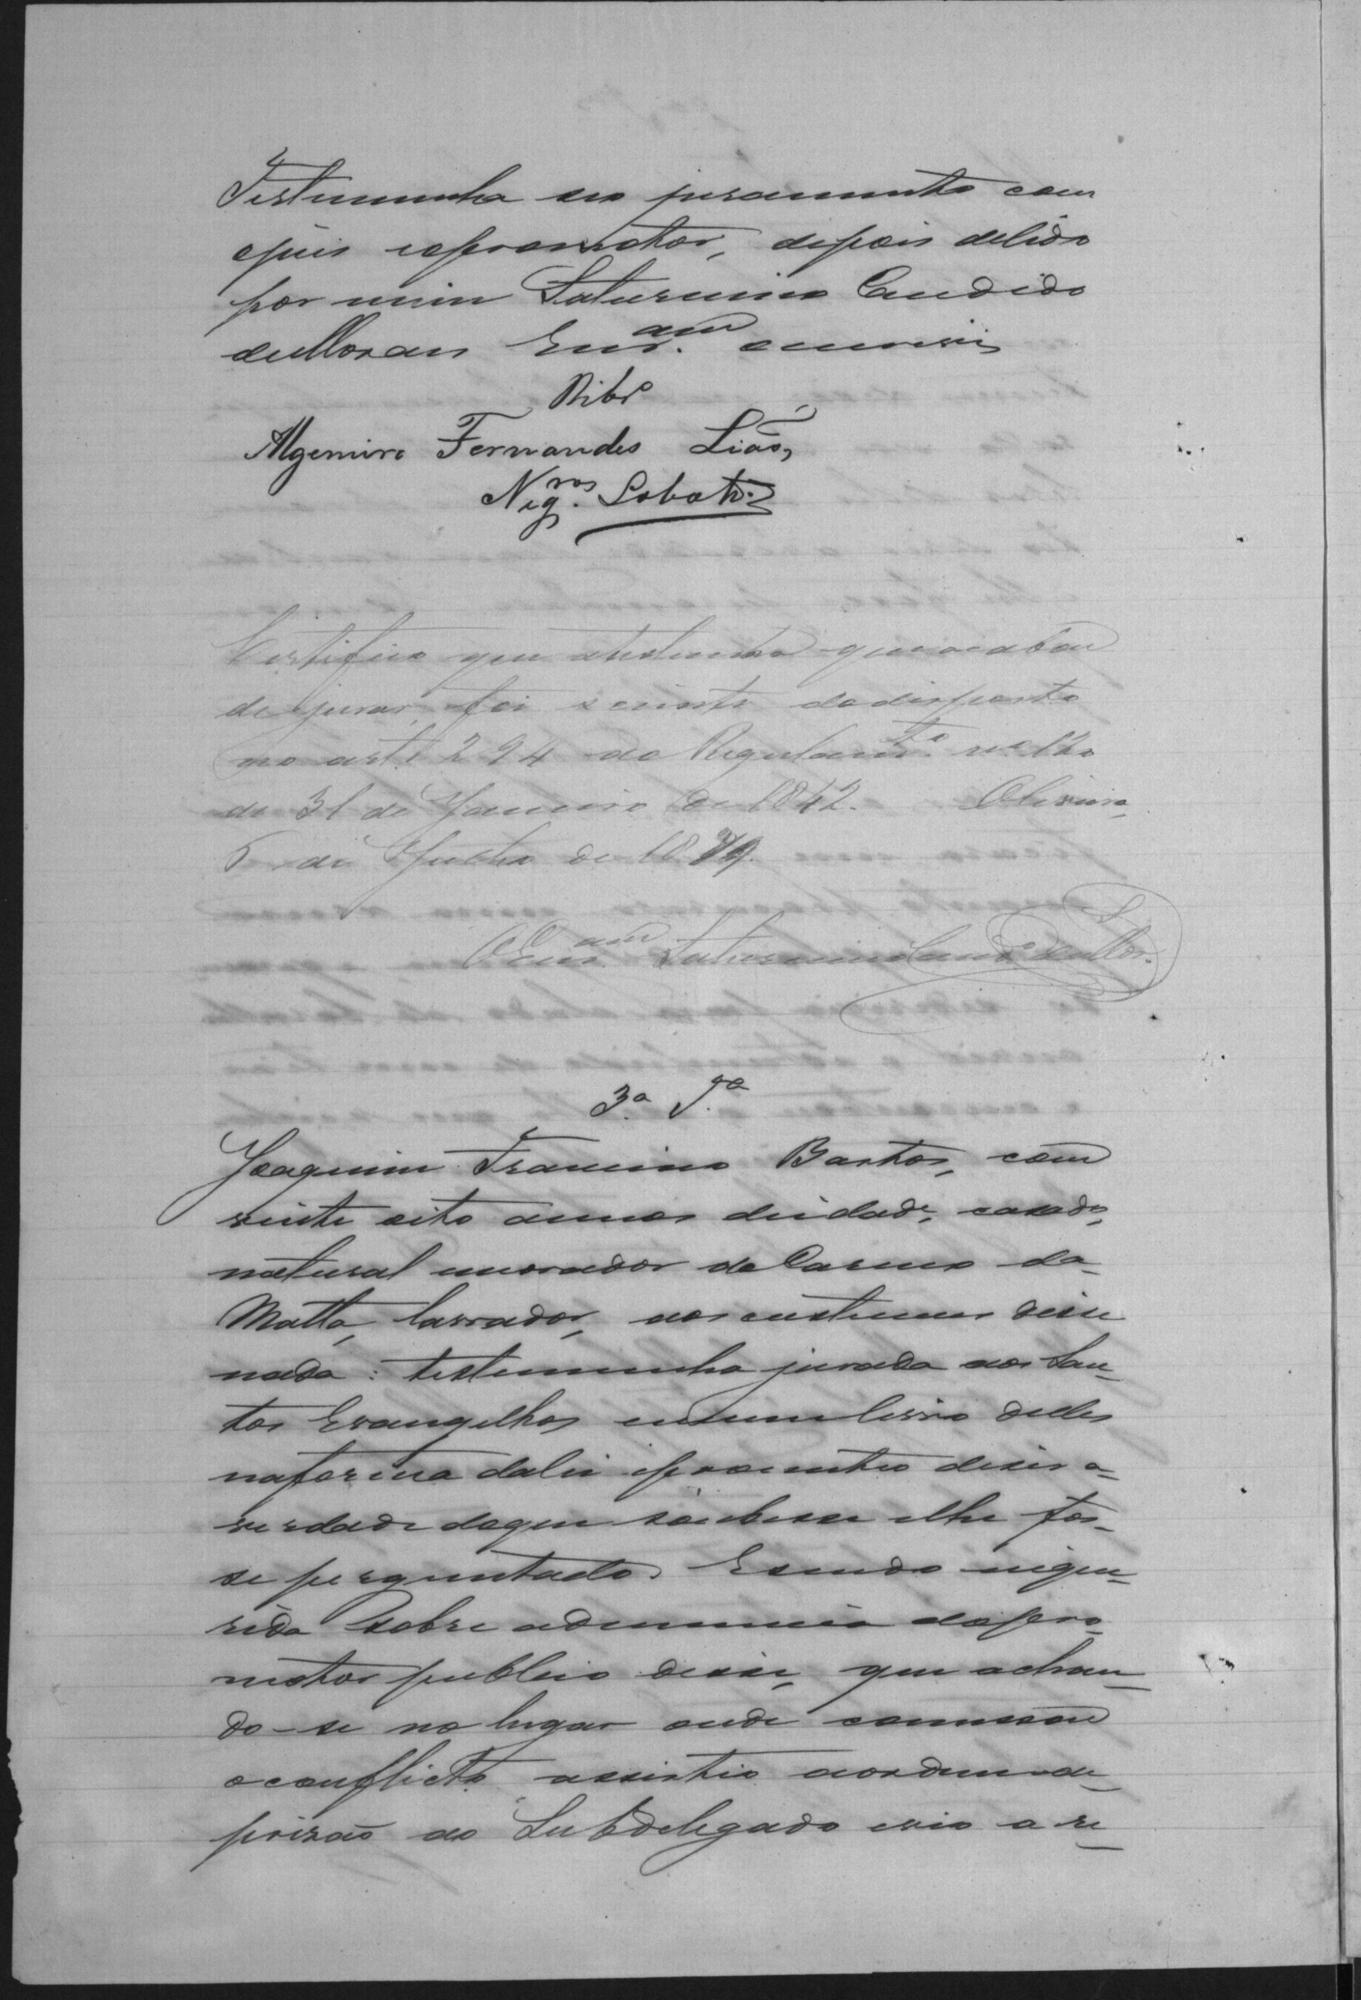 Testemunha seo juramento com
ojuis e o promotor, depois de lido
por mim Saturnino Candido
de Moraes Enr.am escrevi
Ribr.o
Algemiro Fernandes Lião,
Neg.ros Lobato
Certifico que a testemunha que acabou
de jurar, foi sciente do disposto
no art.o 294 do Regulam.to velho
de 31 de Janeiro de 1842. Oliveira,
5 de Julho de 1879.
O Enr.am Saturnino Candido de Mor.
3.a T.a
Joaquim Francisco Bastos, com
vinte oito annos de idade, casado,
natural morador do Carmo da
Matta, lavrador, aos custumes disse
nada: testemunha jurada aos San-
tos Evangelhos em um livro delles
na forma da lei e prometteo diser a
verdade do que soubesse e lhe fos-
se perguntado. E sendo inque-
rida sobre a denuncia do pro-
motor publico disse, que achan-
do-se no lugar onde começou
o conflicto assistio a ordem de
prisão do Subdelegado e vio a re-